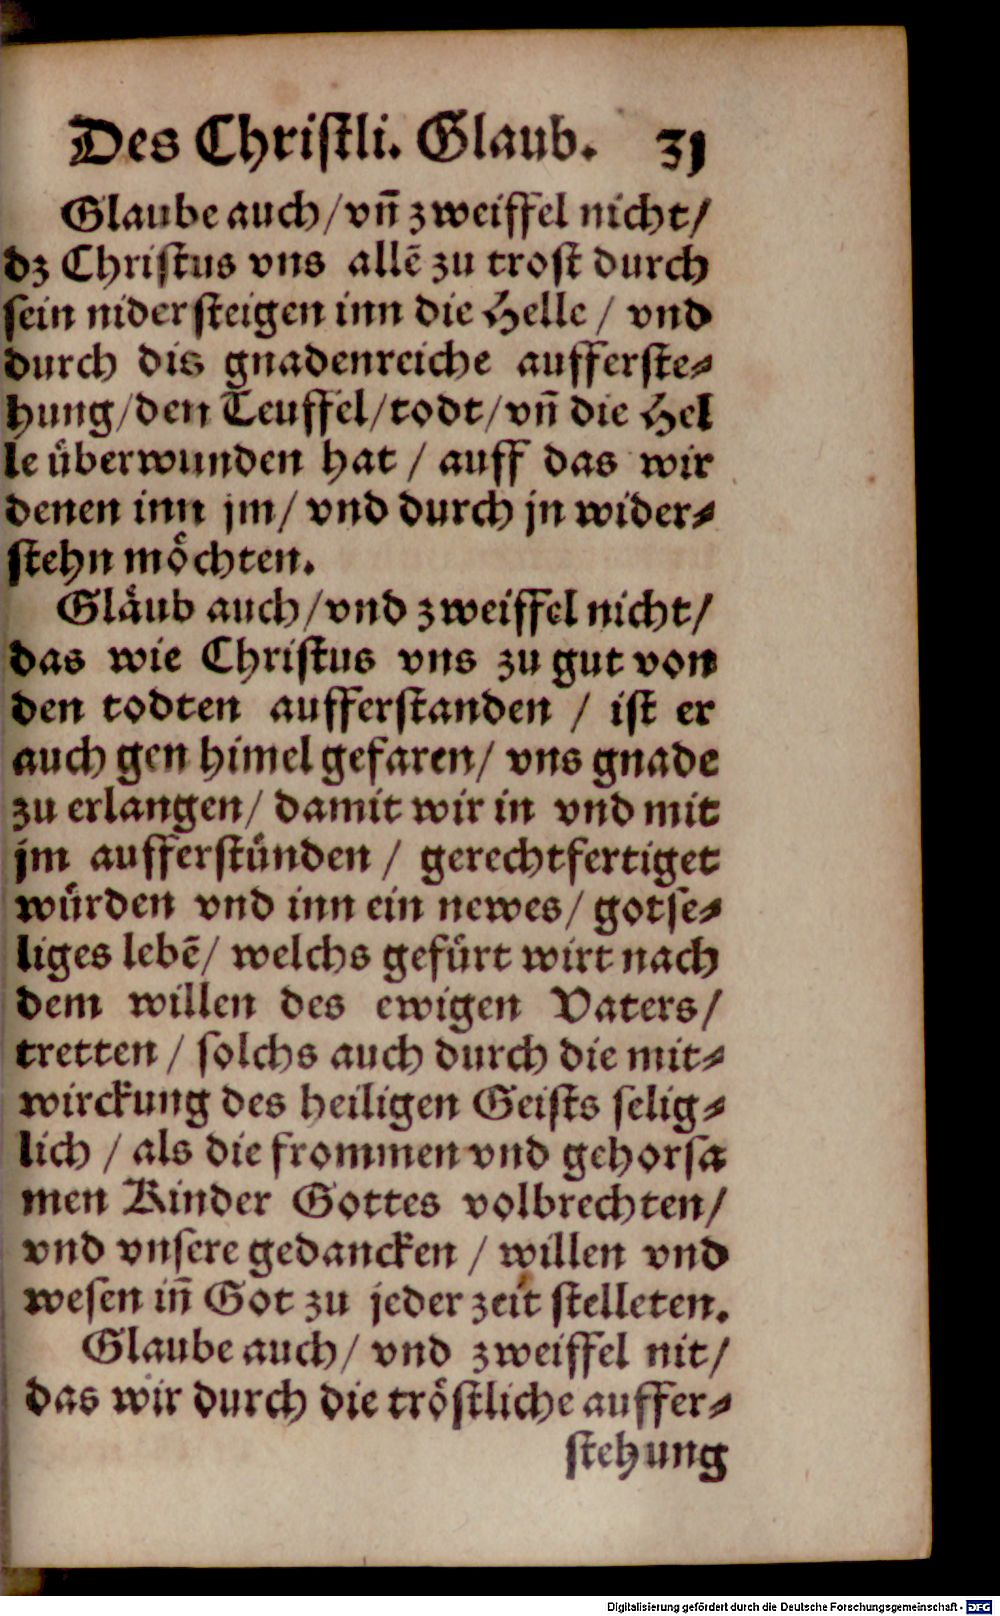 Des Christli. Glaub. 31
Glaube auch/vñ zweiffel nicht/
dz Christus vns allẽ zu trost durch
sein nidersteigen inn die Helle / vnd
durch dis gnadenreiche aufferste⸗
hung/den Teuffel/todt/vñ die Hel
le uͤberwunden hat / auff das wir
denen inn jm/ vnd durch jn wider⸗
stehn moͤchten.
Glaͤub auch/vnd zweiffel nicht/
das wie Christus vns zu gut von
den todten aufferstanden / ist er
auch gen himel gefaren/ vns gnade
zu erlangen/ damit wir in vnd mit
jm aufferstuͤnden / gerechtfertiget
wuͤrden vnd inn ein newes/ gotse⸗
liges lebẽ/ welchs gefuͤrt wirt nach
dem willen des ewigen Vaters/
tretten / solchs auch durch die mit⸗
wirckung des heiligen Geists selig⸗
lich / als die frommen vnd gehorsa
men Kinder Gottes volbrechten/
vnd vnsere gedancken / willen vnd
wesen iñ Got zu jeder zeit stelleten.
Glaube auch/ vnd zweiffel nit/
das wir durch die troͤstliche auffer⸗
stehung
Digitalisierung gefördert durch die Deutsche Forschungsgemeinschaft - DFG